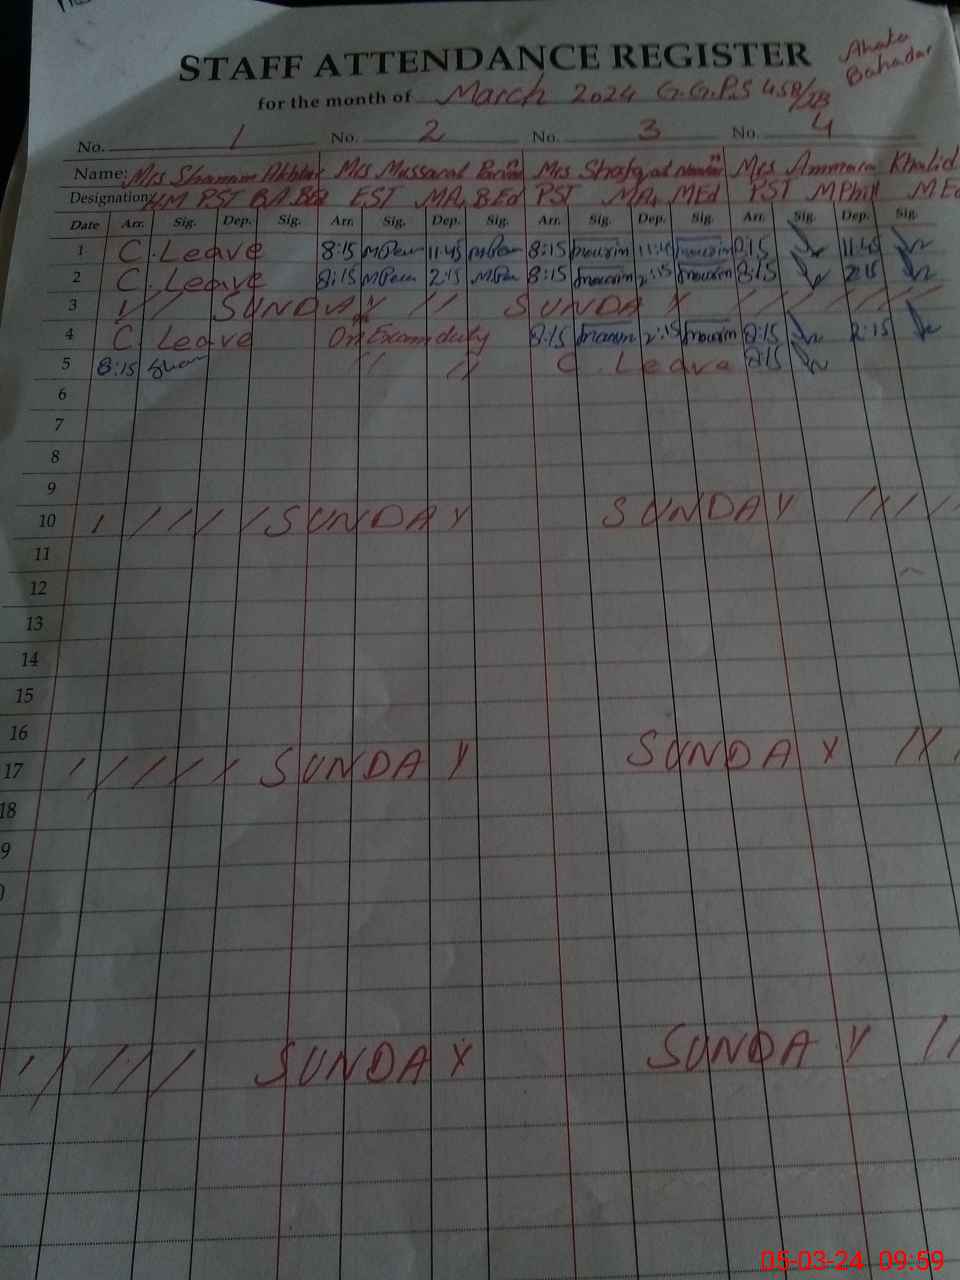 STAFF ATTENDANCE REGISTER
Bahadar
for the month of March 2024 G.G.P.S 45B/2B
No. 1 No. 2 No. 3 No. 4
Name: Mrs Akhtar Mrs Mussarat Mrs Mrs Khalid
Designation: HM PST EST MA, B.Ed PST MA, MEd PST MPhil M Ed
Date Arr. Sig. Dep. Sig. Arr. Sig. Dep. Sig. Arr. Sig. Dep. Sig. Arr. Sig. Dep. Sig.
1 C. Leave 8:15 11:45 8:15 11:45 8:15 11:45
2 C. Leave 8:15 2:15 8:15 2:15 8:15 2:15
3 SUNDAY // SUNDAY
4 C Leave On Exam duty 8:15 2:15 8:15 2:15
5 8:15 // // C. Leave 8:15
6
7
8
9
10 SUNDAY SUNDAY
11
12
13
14
15
16
17 SUNDAY SUNDAY
18
9
0
SUNDAY SUNDAY
05-03-24 09:59